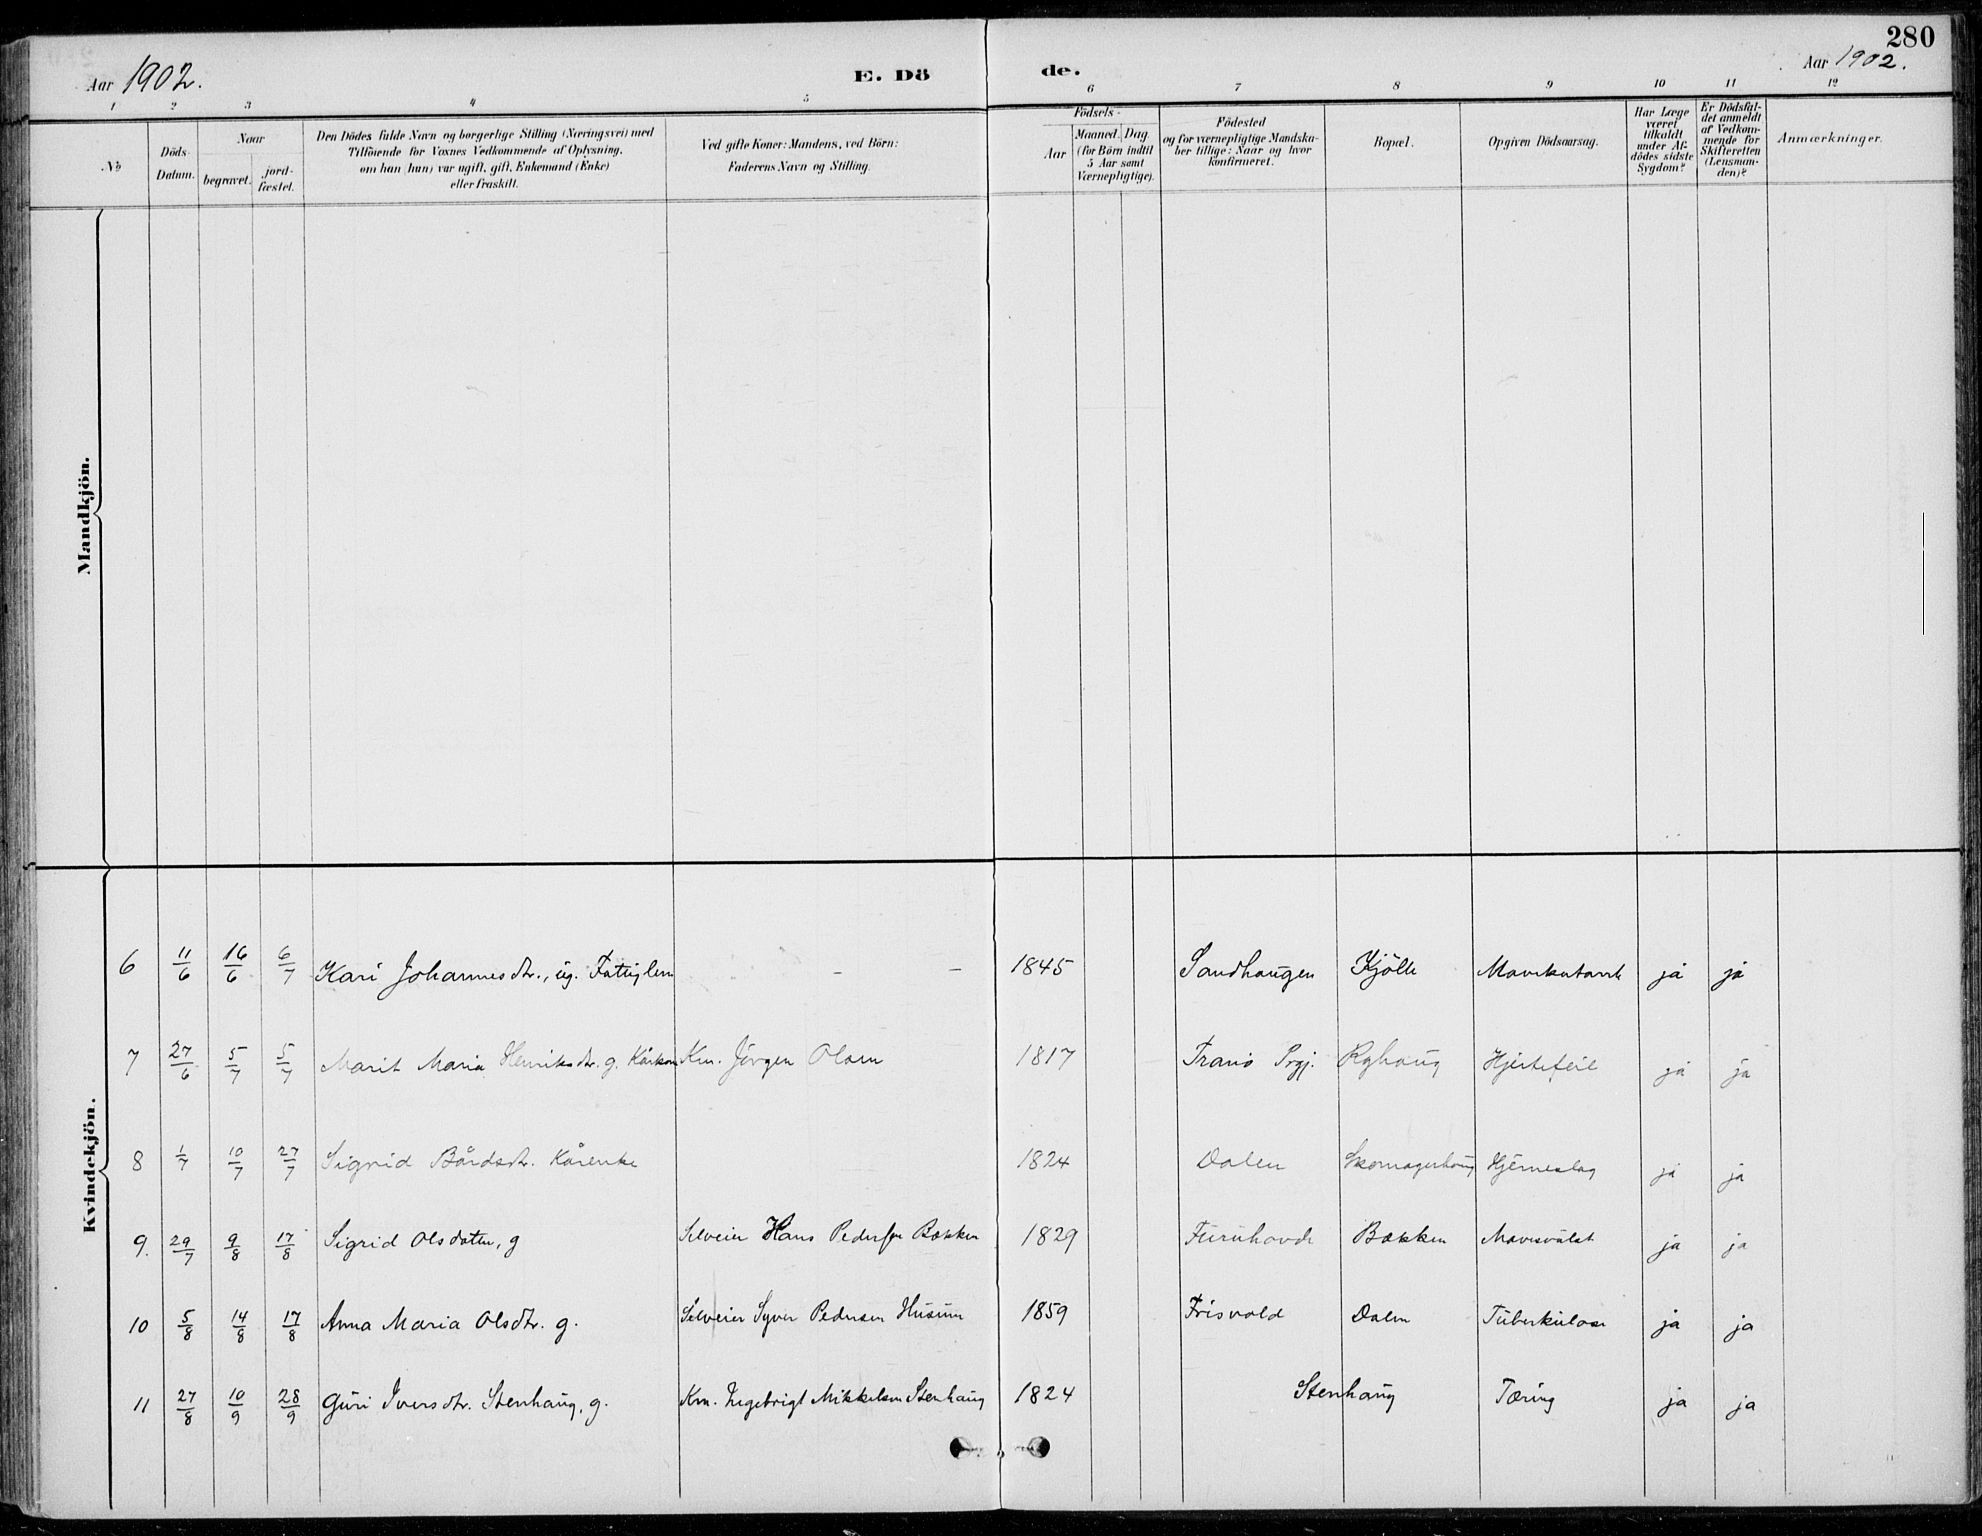 280
Aar 1902.
E. Dö
de.
Aar 1902.
1 2 3 4 5 6 7 8 9 10 11 12
No
Döds-Datum.
Naar
begravet.
jord-fæstet.
Den Dödes fulde Navn og borgerlige Stilling (Næringsvei) med
Tilföiende for Voxnes Vedkommende af Oplysning,
om han (hun) var ugift, gift, Enkemand (Enke)
eller fraskilt.
Ved gifte Koner: Mandens, ved Börn:
Faderens Navn og Stilling.
Födsels-
Aar
Maaned. Dag.
(for Börn indtil
5 Aar samt
Værnepligtige).
Födested
og for værnepligtige Mandska-
ber tillige: Naar og hvor
konfirmeret.
Bopæl.
Opgiven Dödsaarsag.
Har Læge
været
tilkaldt
under Af-
dödes sidste
Sygdom?
Er Dödsfal-
det anmeldt
af Vedkom-
mende for
Skifteretten
(Lensman-
den)?
Anmærkninger.
Mandkjön.
Kvindekjön.
6 11/6 16/6 6/7 Kari Johannesdtr., ug. Fattiglem - - 1845 Sandhaugen Kjölle ja ja
7 27/6 5/7 5/7 Marit Maria Henriksdtr. g. Kårkone Km. Jörgen Olsen 1817 Tranö Prgj. Ryhaug Hjertefeil ja ja
8 1/7 10/7 27/7 Sigrid Bårdsdtr. Kårenke 1824 Dalen Skomagerhaug Hjerneslag ja ja
9. 29/7 9/8 17/8 Sigrid Olsdatter, g Selveier Hans Pedersen Bækken 1829 Furuhovde Bækken Mavesvulst ja ja
10 5/8 14/8 17/8 Anna Maria Olsdtr. g. Selveier Syver Pedersen Husum 1859 Frisvold Dalen Tuberkulose ja ja
11 27/8 10/9 28/9 Guri Iversdtr. Stenhaug, g. Km. Ingebrigt Mikkelsen Stenhaug 1824 Stenhaug Tæring ja ja